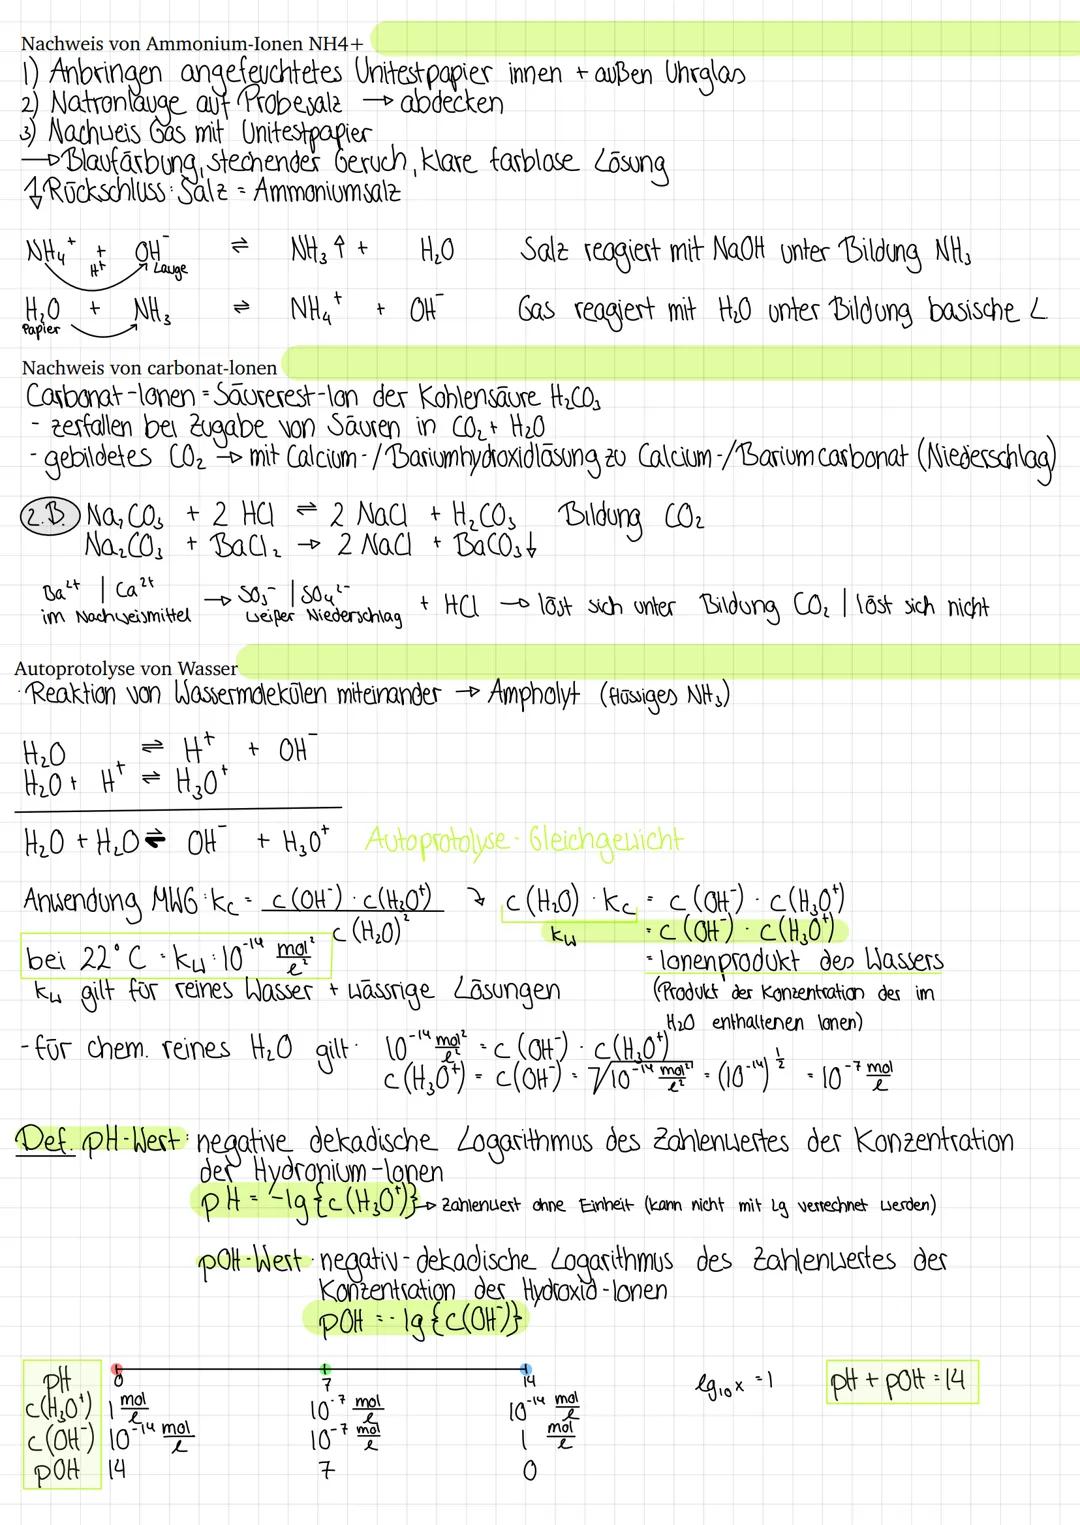 Nachweis von Ammonium-Ionen NH4+
1) Anbringen angefeuchtetes Unitestpapier innen + außen Uhrglas
2) Natronlauge auf Probesalz → abdecken
3) Nachweis Gas mit Unitestpapier
→ Blaufärbung, stechender Geruch, klare farblose Lösung
↳ Rückschluss: Salz = Ammoniumsalz
NH₄⁺ + OH⁻ ⇌ NH₃ ↑ + H₂O Salz reagiert mit NaOH unter Bildung NH₃
H⁺ Lauge
H₂O + NH₃ ⇌ NH₄⁺ + OH⁻ Gas reagiert mit H₂O unter Bildung basische L
Papier
Nachweis von carbonat-Ionen
Carbonat-Ionen = Säurerest-Ion der Kohlensäure H₂CO₃
- zerfallen bei Zugabe von Säuren in CO₂ + H₂O
- gebildetes CO₂ → mit Calcium-/Bariumhydroxidlösung zu Calcium-/Bariumcarbonat (Niederschlag)
z.B. Na₂CO₃ + 2 HCl ⇌ 2 NaCl + H₂CO₃ Bildung CO₂
Na₂CO₃ + BaCl₂ → 2 NaCl + BaCO₃↓
Ba²⁺ | Ca²⁺ → SO₃⁻ | SO₄²⁻ + HCl → löst sich unter Bildung CO₂ | löst sich nicht
im Nachweismittel weißer Niederschlag
Autoprotolyse von Wasser
· Reaktion von Wassermolekülen miteinander → Ampholyt (flüssiges NH₃)
H₂O ⇌ H⁺ + OH⁻
H₂O + H⁺ ⇌ H₃O⁺
H₂O + H₂O ⇌ OH⁻ + H₃O⁺ Autoprotolyse-Gleichgewicht
Anwendung MWG: Kc = c(OH⁻) · c(H₃O⁺) / c(H₂O)² ↴ c(H₂O) · Kc = c(OH⁻) · c(H₃O⁺)
Kw = c(OH⁻) · c(H₃O⁺)
bei 22°C · Kw : 10⁻¹⁴ mol²/l² = Ionenprodukt des Wassers
Kw gilt für reines Wasser + wässrige Lösungen (Produkt der Konzentration des im
H₂O enthaltenen Ionen)
- für chem. reines H₂O gilt: 10⁻¹⁴ mol²/l² = c(OH⁻) · c(H₃O⁺)
c(H₃O⁺) = c(OH⁻) = √10⁻¹⁴ mol²/l² = (10⁻¹⁴)^½ = 10⁻⁷ mol/l
Def. pH-Wert: negative dekadische Logarithmus des Zahlenwertes der Konzentration
der Hydronium-Ionen
pH = -lg{c(H₃O⁺)} → Zahlenwert ohne Einheit (kann nicht mit Lg verrechnet werden)
pOH-Wert: negativ-dekadische Logarithmus des Zahlenwertes der
Konzentration der Hydroxid-Ionen
pOH = -lg{c(OH⁻)}
pH 0 7 14 lg₁₀x = 1 pH + pOH = 14
c(H₃O⁺) 1 mol/l 10⁻⁷ mol/l 10⁻¹⁴ mol/l
c(OH⁻) 10⁻¹⁴ mol/l 10⁻⁷ mol/l 1 mol/l
pOH 14 7 0